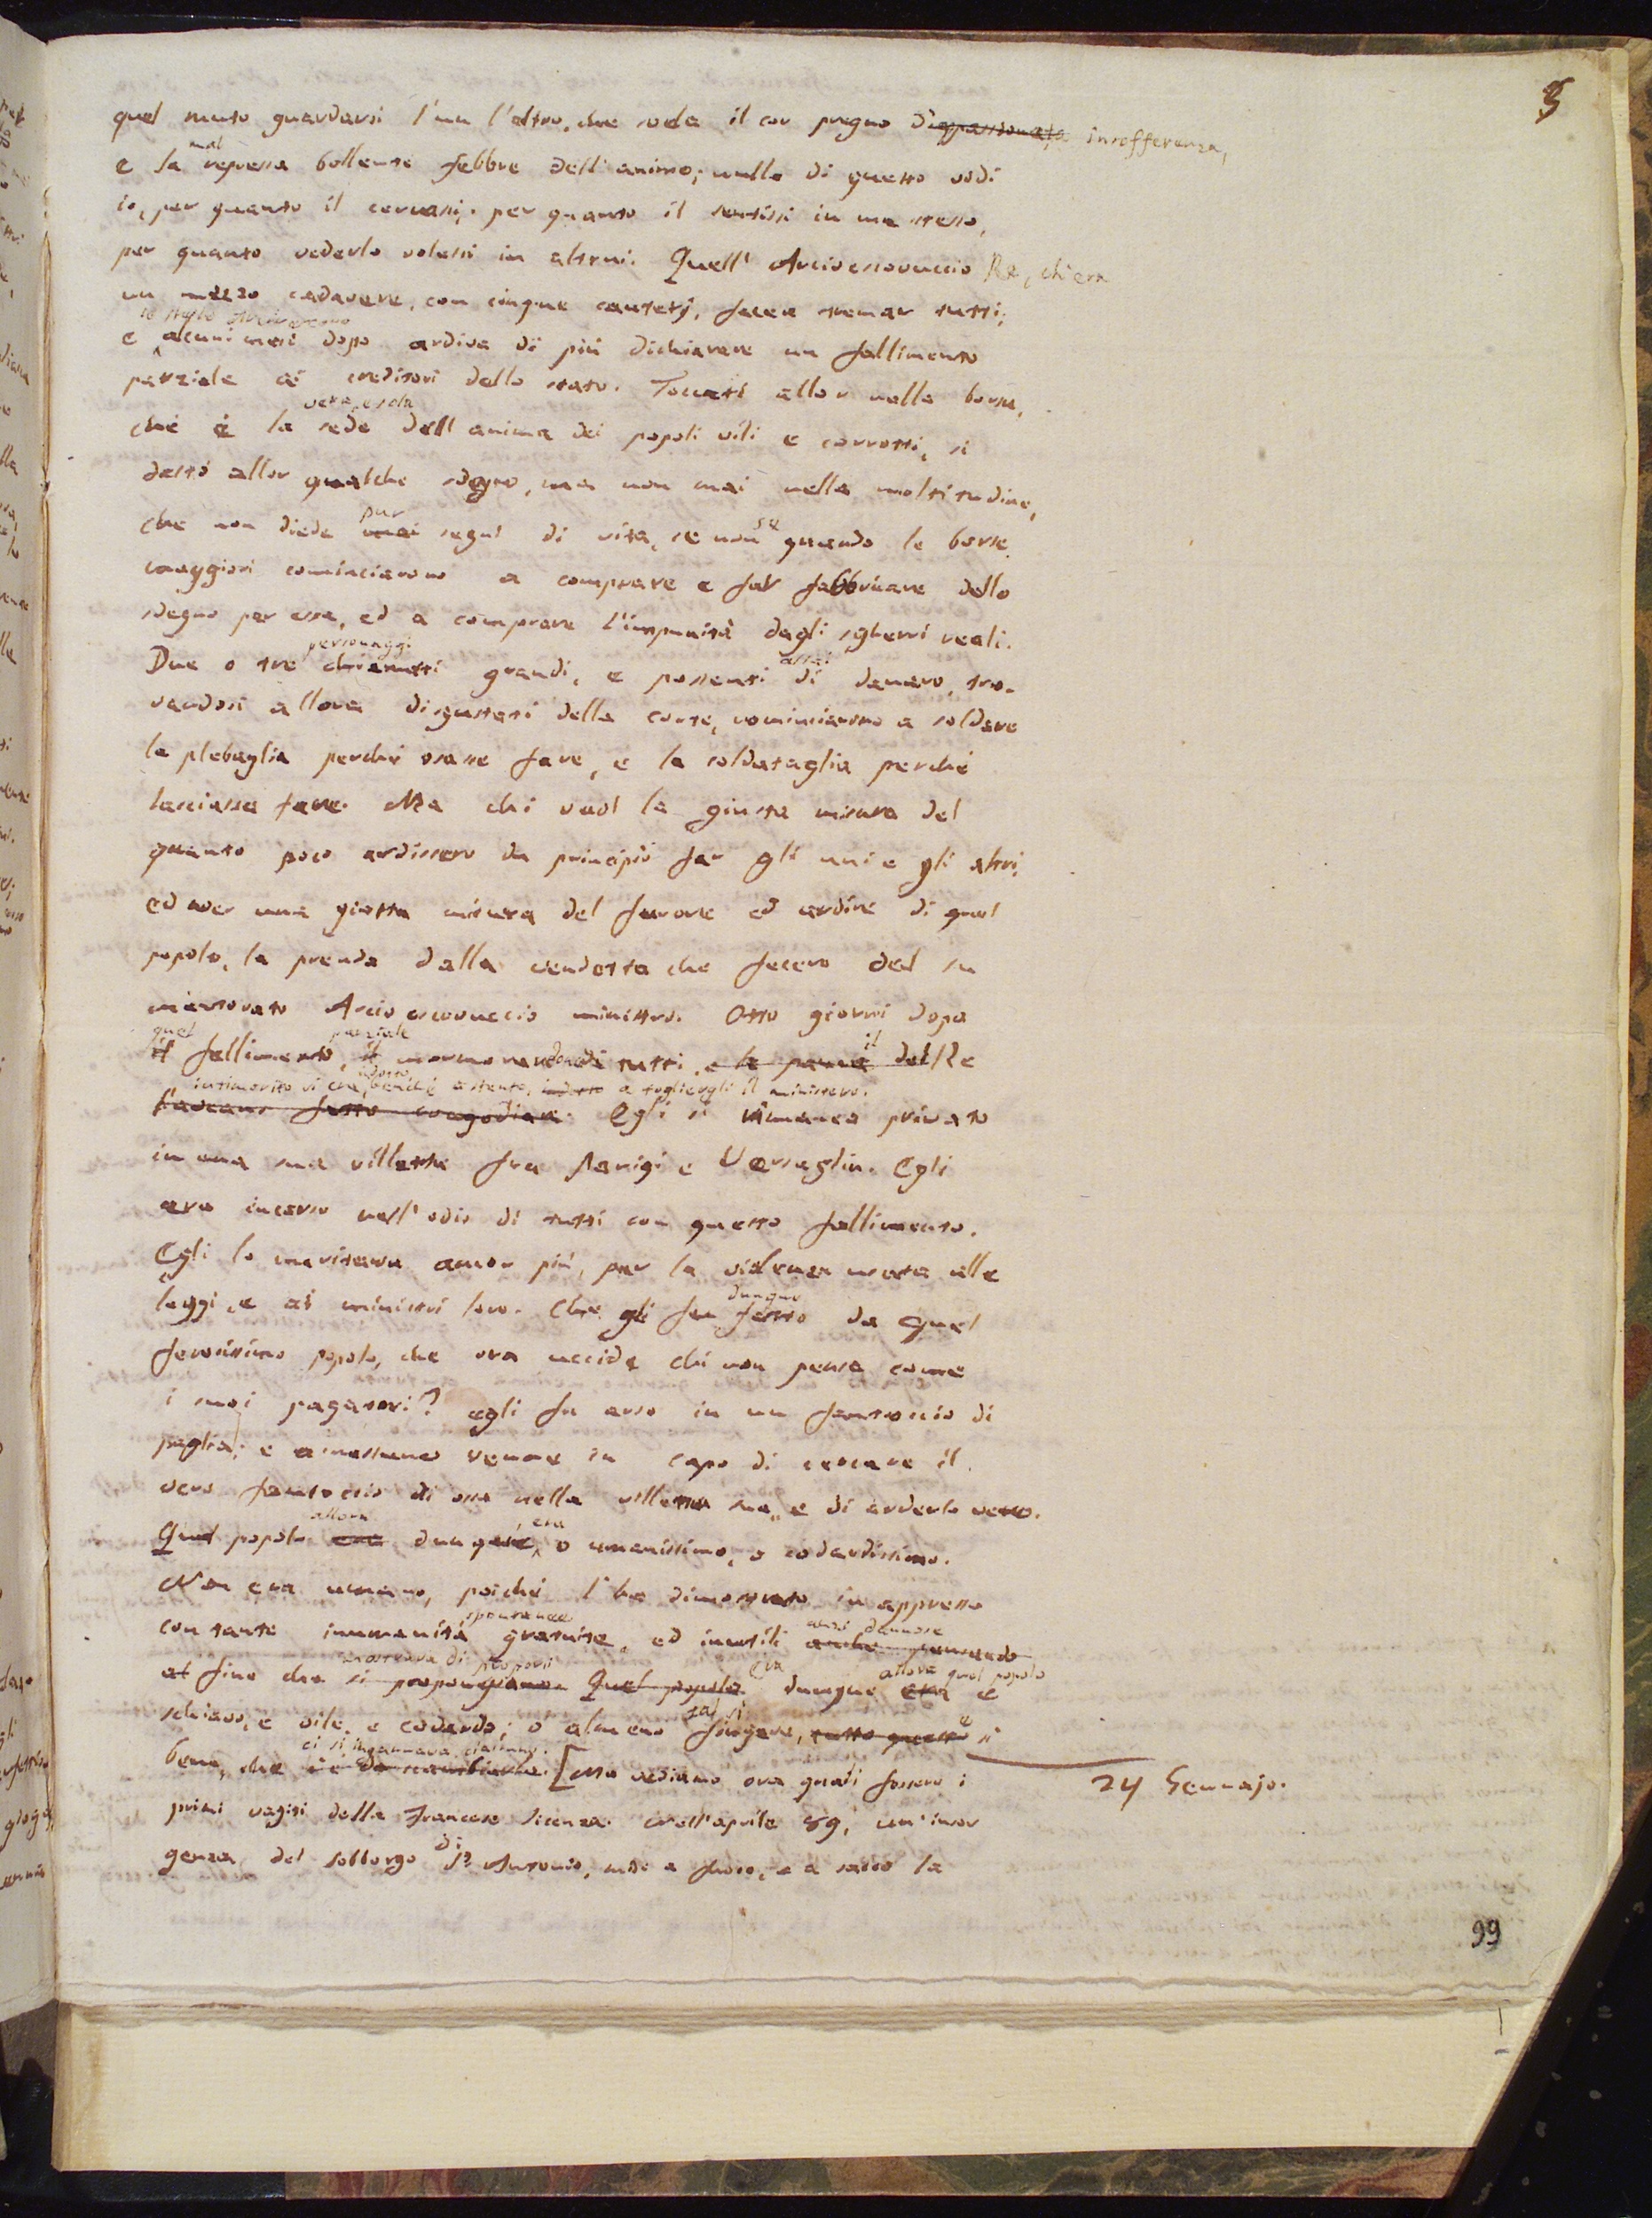 5
quel muto guardarsi l'un l'altro, che svela il cor pregno d'appassionata insofferenza,
e la mal repressa bollente febbre dell'animo; nulla di questo vidi
io, per quanto il cercassi, per quanto il sentissi in me stesso,
per quanto vederlo volessi in altrui. Quell'Arcivescovuccio Re, ch'era
un mezzo cadavere, con cinque cauterj, facea tremar tutti;
e alcuni mesi dopo ardiva di più dichiarare un fallimento
parziale ai creditori dello stato. Toccati allor nella borsa,
che è la vera, e sola sede dell'anima dei popoli vili e corrotti, si
destò allor qualche sdegno, ma non mai nella moltitudine,
che non diede mai pur segni di vita, se non se quando le borse
maggiori cominciarono a comprare e far fabbricare dello
sdegno per esse, ed a comprare l'impunità dagli sgherri reali.
Due o tre personaggi grandi, e possenti assai di denaro, tro-
vandosi allora disgustati della corte, cominciarono a soldare
la plebaglia perchè osasse fare, e la soldataglia perchè
lasciasse fare. Ma chi vuol la giusta misura del
quanto poco ardissero da principio far gli uni e gli altri,
ed aver una giusta misura del furore ed ardire di quel
popolo, la prenda dalla vendetta che fecero del su
mentovato Arcivescovuccio ministro. Otto giorni dopo
il quel fallimento parziale, mormorandone di tutti, e la paura il del Re
intimorito si era indotto, benchè a stento, indotto a togliergli il ministero.
l'aveano fatto congediare. Egli si rimanea privato
in una sua villetta fra Parigi e Versaglia. Egli
era incorso nell'odio di tutti con questo fallimento.
Egli lo meritava ancor più, per la violenza usata alle
leggi, e ai ministri loro. Che gli fu dunque fatto da quel
ferocissimo popolo, che ora uccide chi non pensa come
i suoi pagatori? egli fu arso in un fantoccio di
paglia; e a nessuno venne in capo di cercare il
vero fantoccio di ossa nella villetta sua, e di arderlo vero.
Quel popolo allora era dunque, era o umanissimo, o codardissimo.
Non era umano, poichè l'ha dimostrato in appresso
con tante inumanità spontanee gratuite, ed inutili anzi dannose
al fine che si proponeano mostrava di proporsi. Quel popolo era dunque era allora quel popolo e
schiavo, e vile, e codardo; o almeno fingea, tutto questo e sì
bene, che ci si ingannava ciascuno. [Ma vediamo ora quali fossero i
24 Gennajo.
primi vagiti della Francese licenza. Nell'aprile 89, un'insor
genza del sobborgo di St Antonio, mise a fuoco, e a sacco la
99